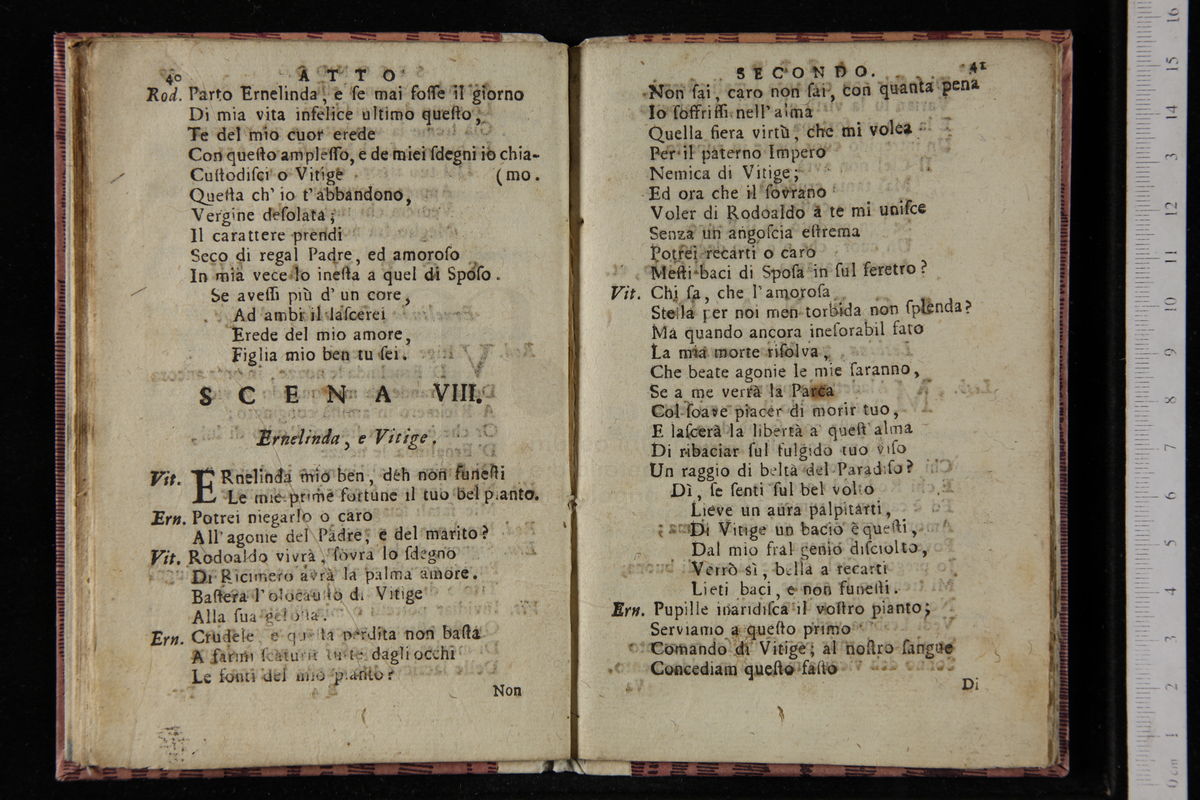 40 ATTO
Rod. Parto Ernelinda, e ſe mai foſſe il giorno
Di mia vita infelice ultimo queſto,
Te del mio cuor erede
Con queſto ampleſſo, e de miei ſdegni io chia-
Cuſtodiſci o Vitige (mo.
Queſta ch' io t'abbandono,
Vergine deſolata;
Il carattere prendi
Seco di regal Padre, ed amoroſo
In mia vece lo ineſta a quel di Spoſo.
Se aveſſi più d' un core,
Ad ambi il laſcerei
Erede del mio amore,
Figlia mio ben tu ſei.
SCENA VIII.
Ernelinda, e Vitige.
Vit. ERnelinda mio ben, deh non funeſti
Le mie prime fortune il tuo bel pianto.
Ern. Potrei niegarlo o caro
All'agonie del Padre, e del marito?
Vit. Rodoaldo vivrà, ſovra lo ſdegno
Di Ricimero avrà la palma amore.
Baſterà l'olocauſto di Vitige
Alla ſua geloſia.
Ern. Crudele, e queſta perdita non baſta
A farmi ſcaturir tutte dagli occhi
Le fonti del mio pianto?
Non
SECONDO. 41
Non ſai, caro non ſai, con quanta pena
Io ſoffriſſi nell'alma
Quella fiera virtù, che mi volea
Per il paterno Impero
Nemica di Vitige;
Ed ora che il ſovrano
Voler di Rodoaldo a te mi uniſce
Senza un angoſcia eſtrema
Potrei recarti o caro
Meſti baci di Spoſa in ſul feretro?
Vit. Chi ſa, che l'amoroſa
Stella per noi men torbida non ſplenda?
Ma quando ancora ineſorabil fato
La mia morte riſolva,
Che beate agonie le mie ſaranno,
Se a me verrà la Parca
Col ſoave piacer di morir tuo,
E laſcerà la libertà a queſt'alma
Di ribaciar ſul fulgido tuo viſo
Un raggio di beltà del Paradiſo?
Dì, ſe ſenti ſul bel volto
Lieve un aura palpitarti,
Di Vitige un bacio è queſti,
Dal mio fral genio diſciolto,
Verrò sì, bella a recarti
Lieti baci, e non funeſti.
Ern. Pupille inaridiſca il voſtro pianto;
Serviamo a queſto primo
Comando di Vitige; al noſtro ſangue
Concediam queſto faſto
Di
16
15
14
13
12
11
10
9
8
7
6
5
4
3
2
1
0 cm